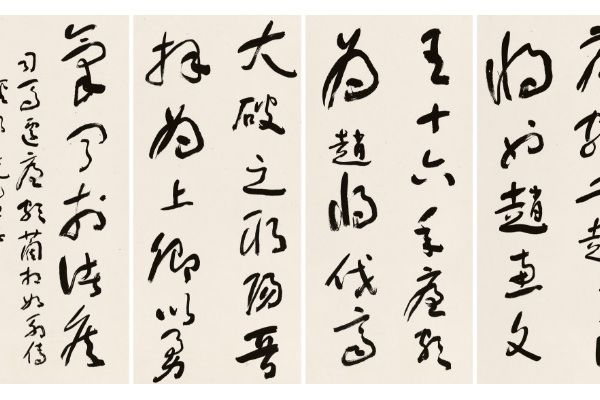 廉頗者趙
將也趙惠文
王十六年廉頗
為趙將伐齊
大破之取陽晉
拜為上卿以勇
氣聞於諸侯
司馬遷廉頗藺相如列傳